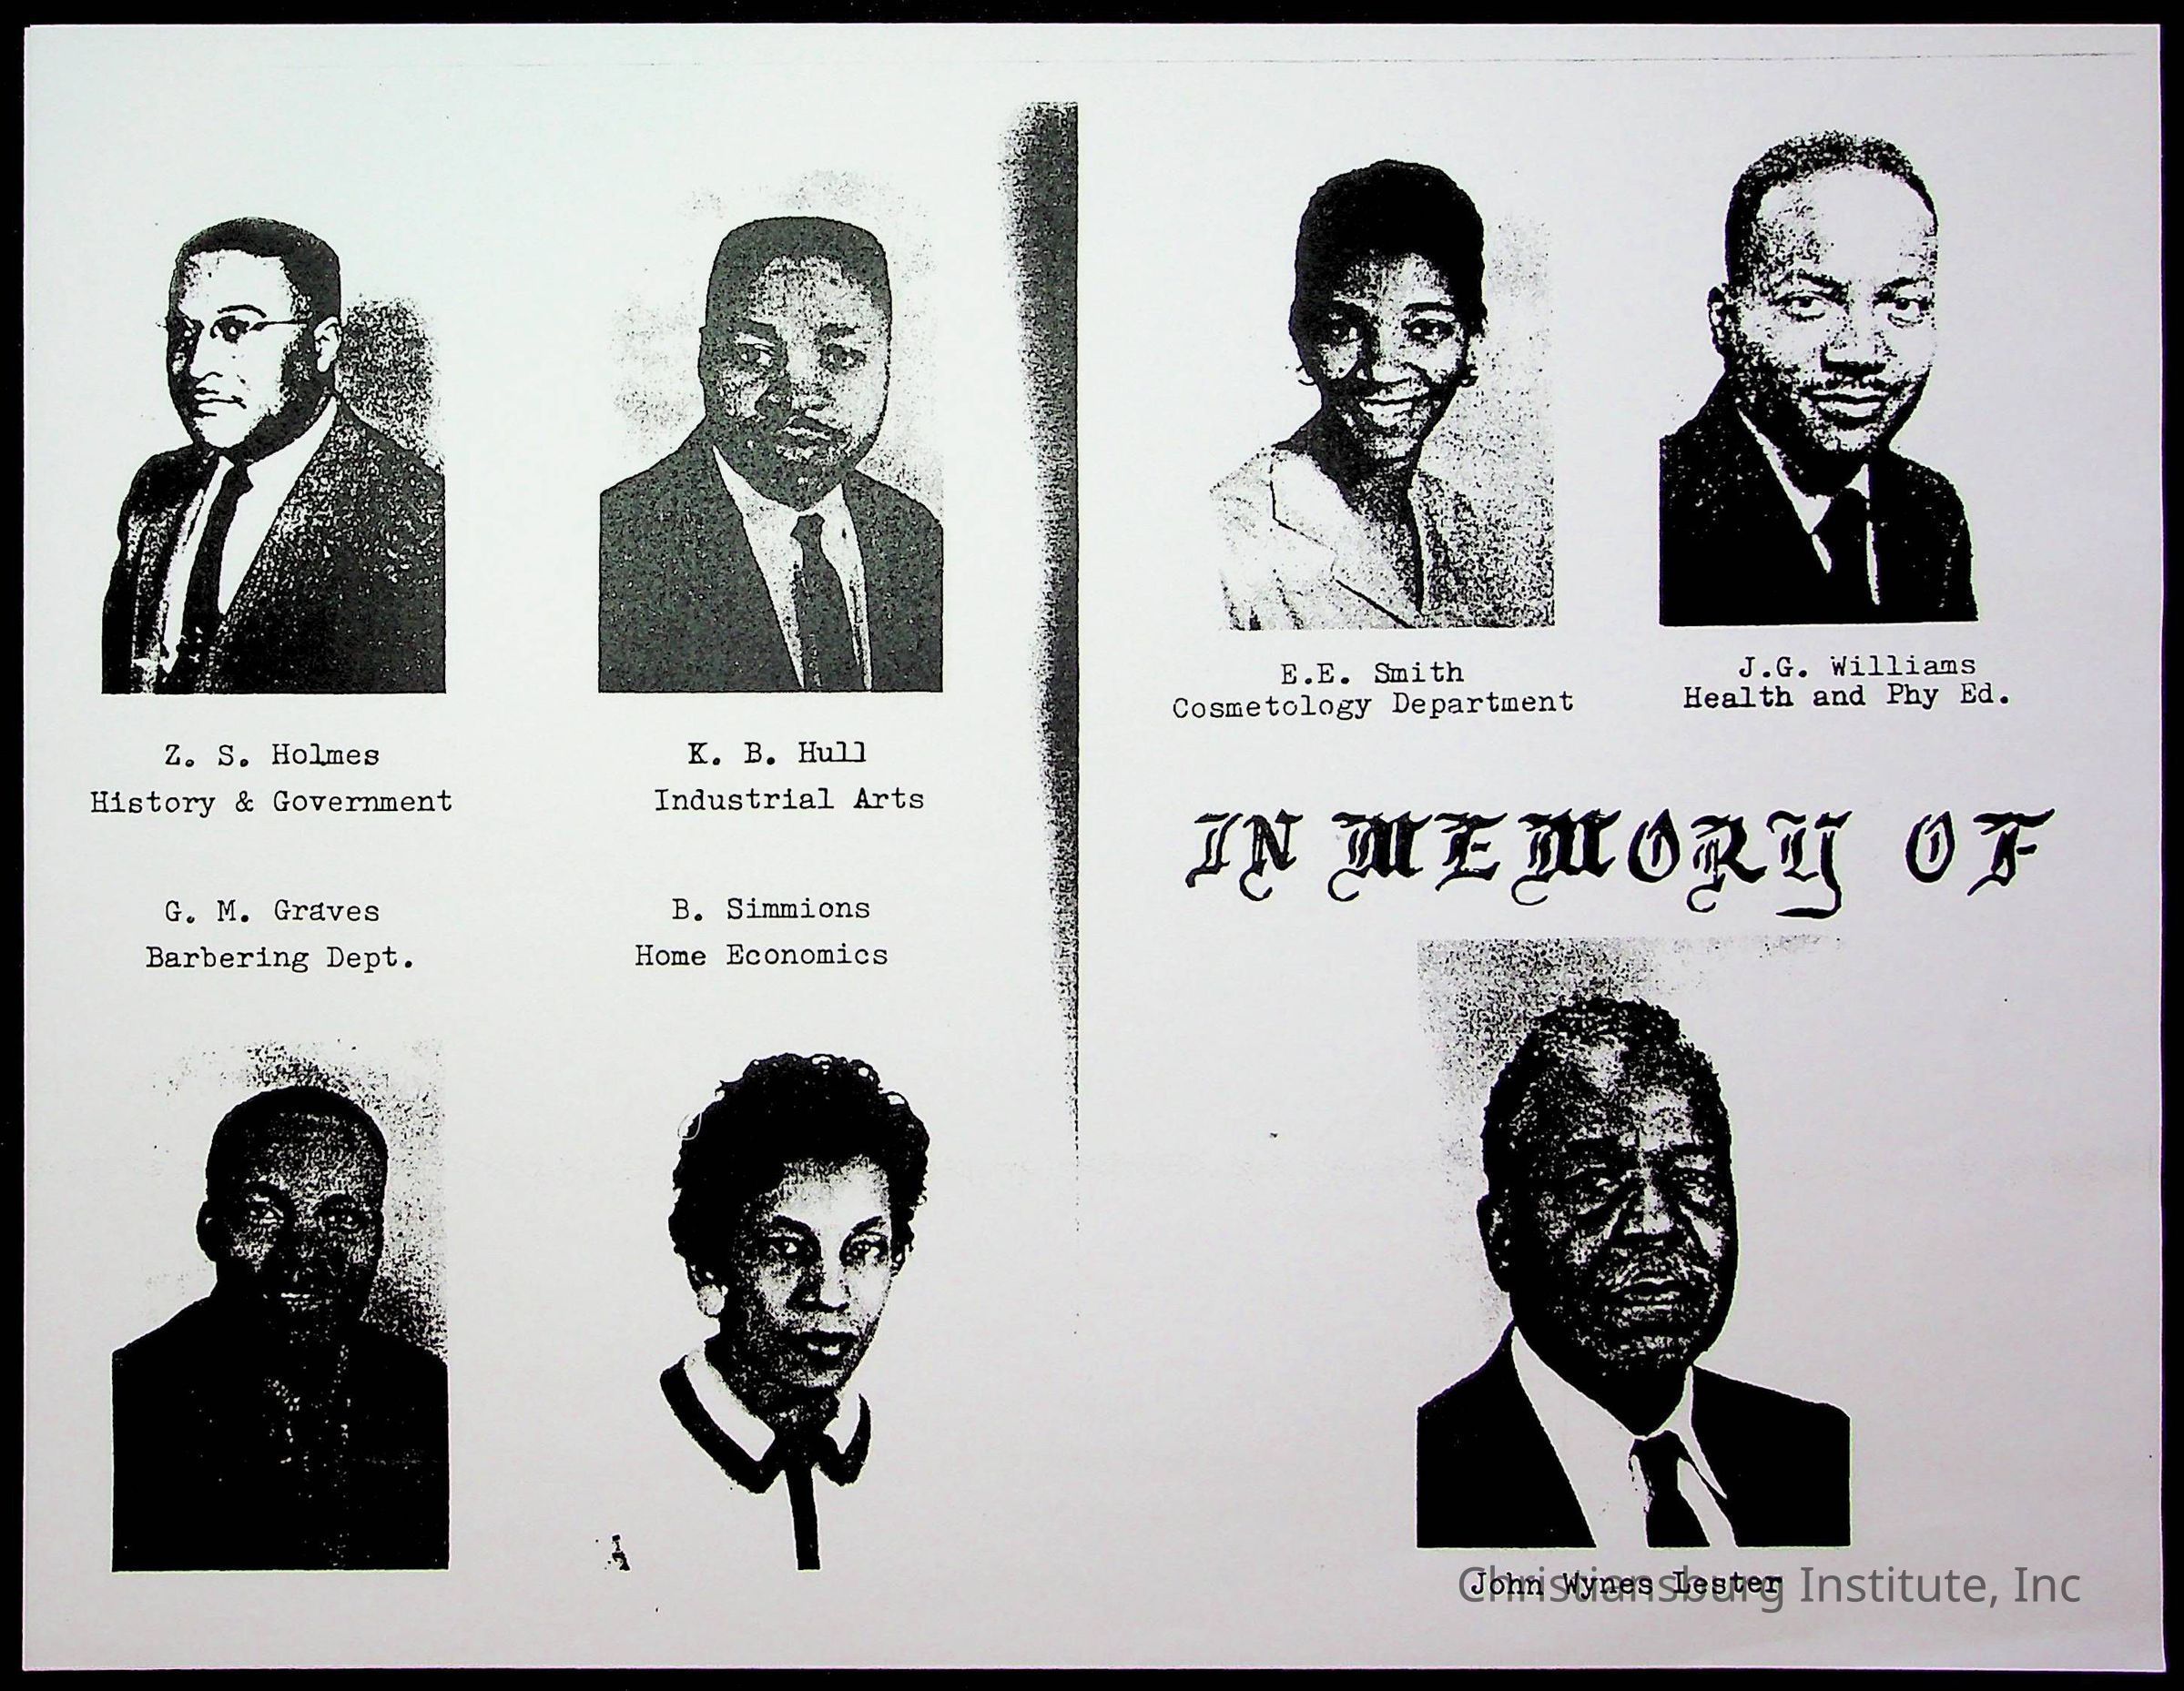 Z. S. Holmes
History & Government
K. B. Hull
Industrial Arts
G. M. Graves
Barbering Dept.
B. Simmions
Home Economics
E.E. Smith
Cosmetology Department
J.G. Williams
Health and Phy Ed.
IN MEMORY OF
John Wynes Lester
Christiansburg Institute, Inc